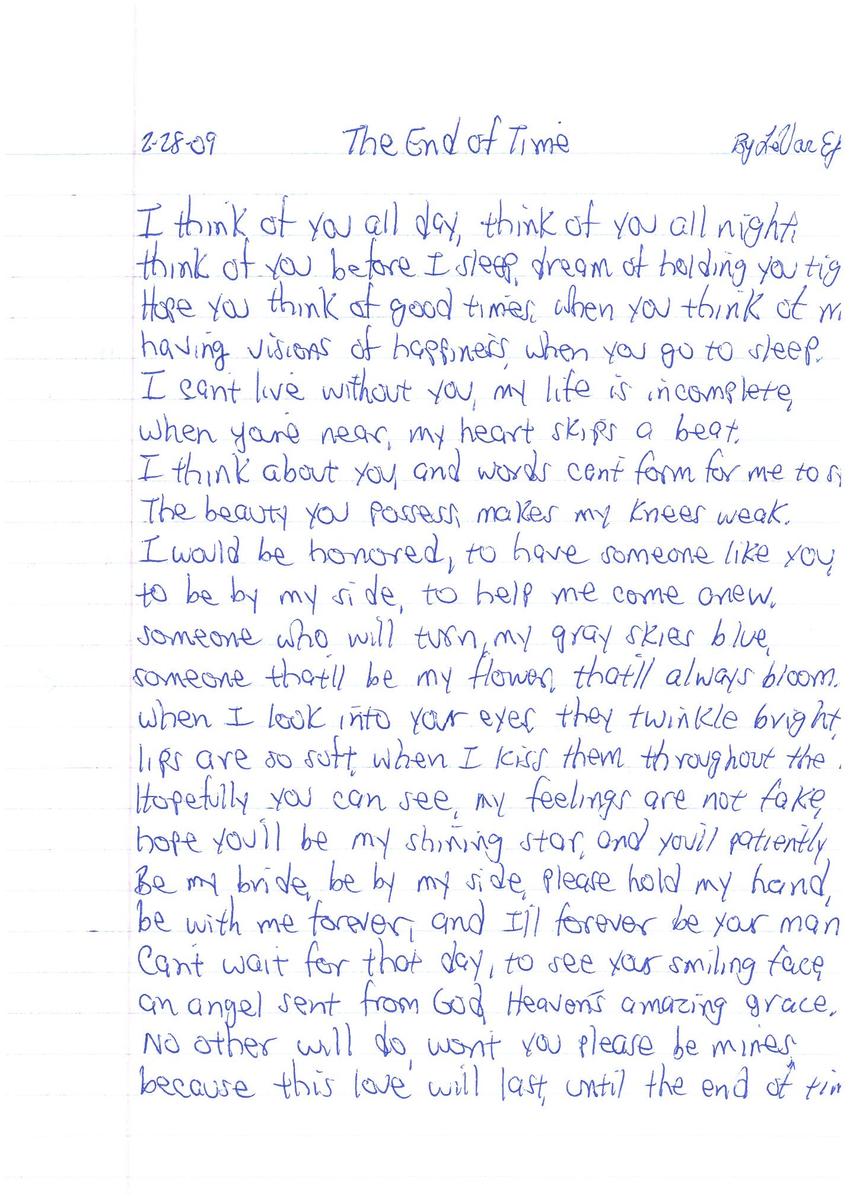 2-28-09 The End of Time By LeVar
I think of you all day, think of you all night,
think of you before I sleep, dream of holding you tig
Hope you think of good times, when you think of m
having visions of happiness, when you go to sleep.
I can't live without you, my life is incomplete,
when you're near, my heart skips a beat.
I think about you, and words cant form for me to s
The beauty you possess, makes my knees weak.
I would be honored, to have someone like you,
to be by my side, to help me come anew.
someone who will turn, my gray skies blue,
someone that'll be my flower, that'll always bloom.
when I look into your eyes, they twinkle bright,
lips are so soft, when I kiss them throughout the
Hopefully you can see, my feelings are not fake,
hope you'll be my shining star, and you'll patiently
Be my bride, be by my side, please hold my hand,
be with me forever, and I'll forever be your man
Can't wait for that day, to see your smiling face,
an angel sent from God, Heaven's amazing grace.
No other will do, won't you please be mines,
because this love, will last, until the end of tim